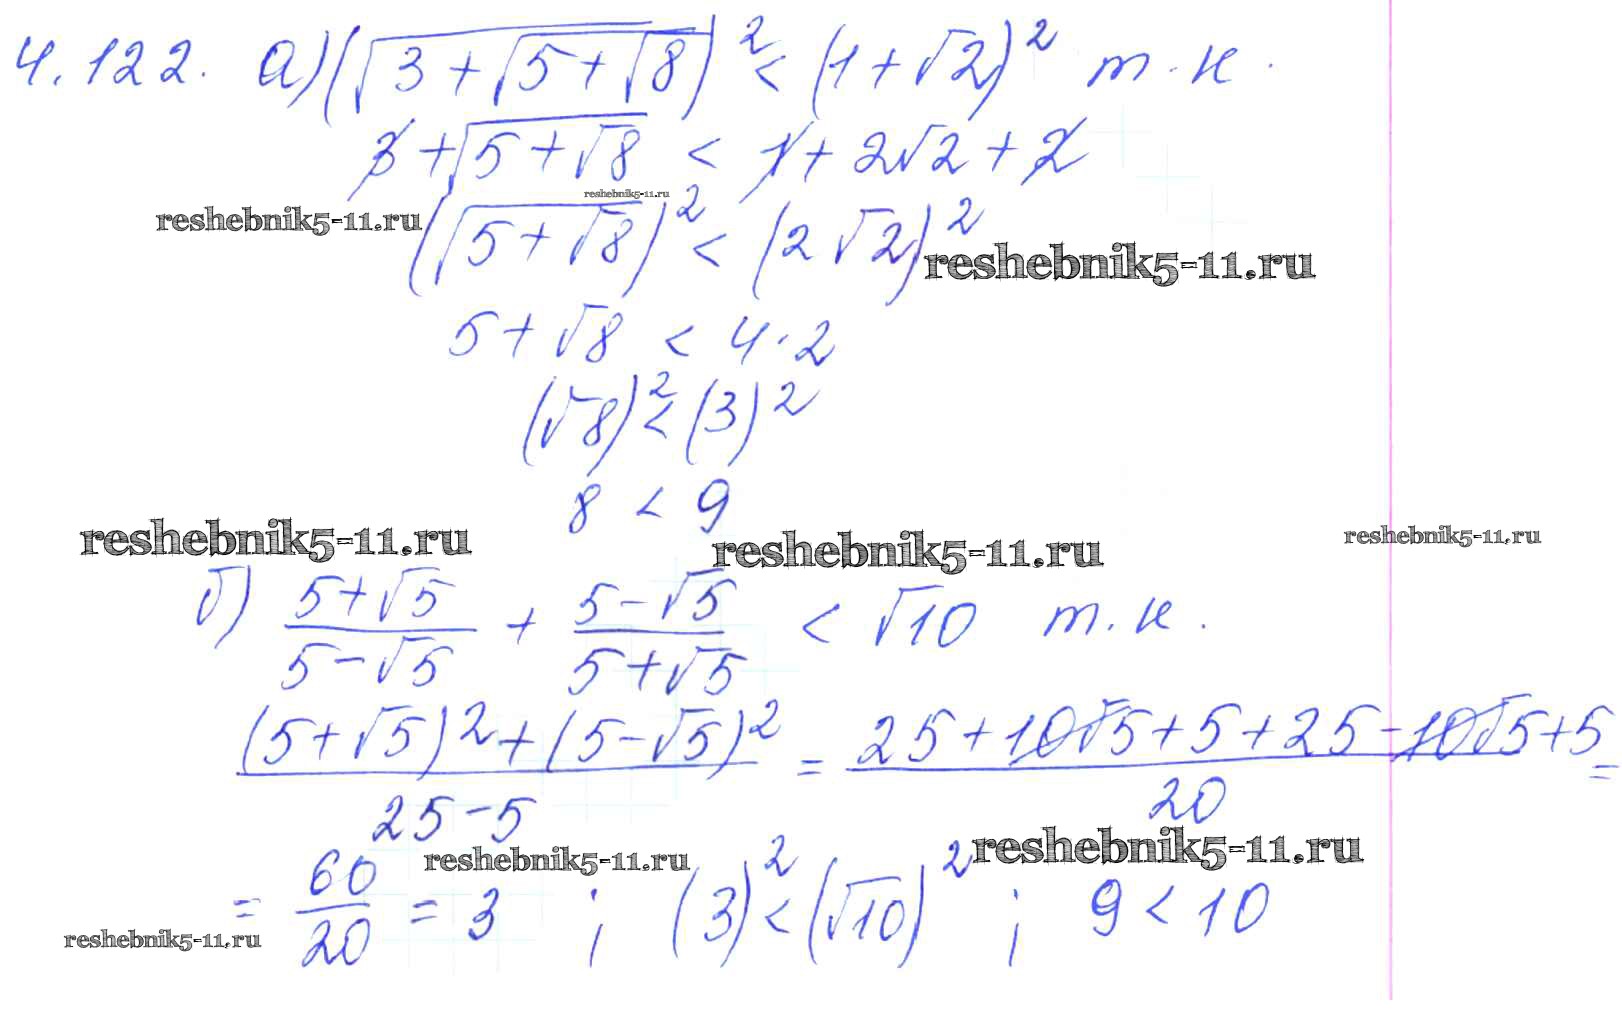 4.122. а) (√(3+√(5+√8)))² < (1+√2)² т.к.
3+√(5+√8) < 1+2√2+2
reshebnik5-11.ru
reshebnik5-11.ru (√(5+√8))² < (2√2)² reshebnik5-11.ru
5+√8 < 4·2
(√8)² < (3)²
8 < 9
reshebnik5-11.ru reshebnik5-11.ru reshebnik5-11.ru
б) (5+√5)/(5-√5) + (5-√5)/(5+√5) < √10 т.к.
((5+√5)²+(5-√5)²)/(25-5) = (25+10√5+5+25-10√5+5)/20 =
reshebnik5-11.ru reshebnik5-11.ru
= 60/20 = 3 ; (3)² < (√10)² ; 9 < 10
reshebnik5-11.ru